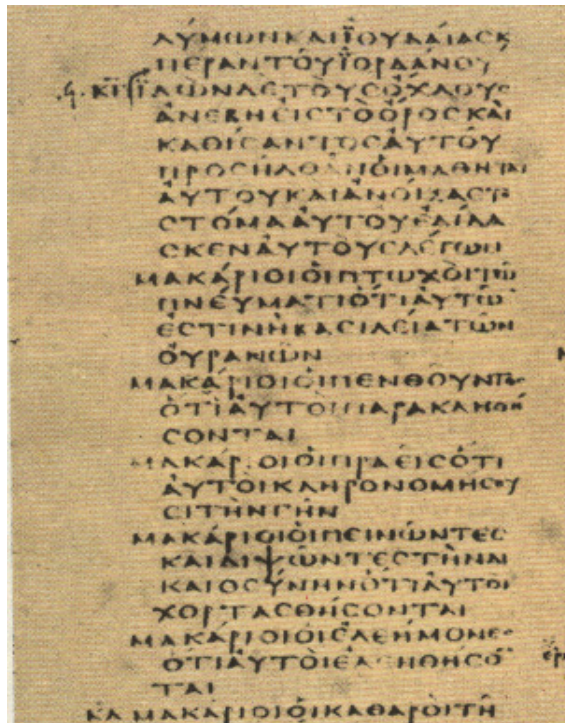 ΛΥΜΩΝΚΑΙΪΟΥΔΑΙΑϹΚ
ΠΕΡΑΝΤΟΥΪΟΡΔΑΝΟΥ
ΪΔΩΝΔΕΤΟΥϹΟΧΛΟΥϹ
ΑΝΕΒΗΕΙϹΤΟΟΡΟϹΚΑΙ
ΚΑΘΙϹΑΝΤΟϹΑΥΤΟΥ
ΠΡΟϹΗΛΘΑΝΟΙΜΑΘΗΤΑΙ
ΑΥΤΟΥΚΑΙΑΝΟΙΞΑϹΤΟ
ϹΤΟΜΑΑΥΤΟΥΕΔΙΔΑ
ϹΚΕΝΑΥΤΟΥϹΛΕΓΩΝ
ΜΑΚΑΡΙΟΙΟΙΠΤΩΧΟΙΤΩ
ΠΝΕΥΜΑΤΙΟΤΙΑΥΤΩ
ΕϹΤΙΝΗΒΑϹΙΛΕΙΑΤΩΝ
ΟΥΡΑΝΩΝ
ΜΑΚΑΡΙΟΙΟΙΠΕΝΘΟΥΝΤΕϹ
ΟΤΙΑΥΤΟΙΠΑΡΑΚΛΗΘΗ
ϹΟΝΤΑΙ
ΜΑΚΑΡΙΟΙΟΙΠΡΑΕΙϹΟΤΙ
ΑΥΤΟΙΚΛΗΡΟΝΟΜΗϹΟΥ
ϹΙΤΗΝΓΗΝ
ΜΑΚΑΡΙΟΙΟΙΠΕΙΝΩΝΤΕϹ
ΚΑΙΔΙΨΩΝΤΕϹΤΗΝΔΙ
ΚΑΙΟϹΥΝΗΝΟΤΙΑΥΤΟΙ
ΧΟΡΤΑϹΘΗϹΟΝΤΑΙ
ΜΑΚΑΡΙΟΙΟΙΕΛΕΗΜΟΝΕϹ
ΟΤΙΑΥΤΟΙΕΛΕΗΘΗϹΟ
ΤΑΙ
ΚΑ ΜΑΚΑΡΙΟΙΟΙΚΑΘΑΡΟΙΤΗ